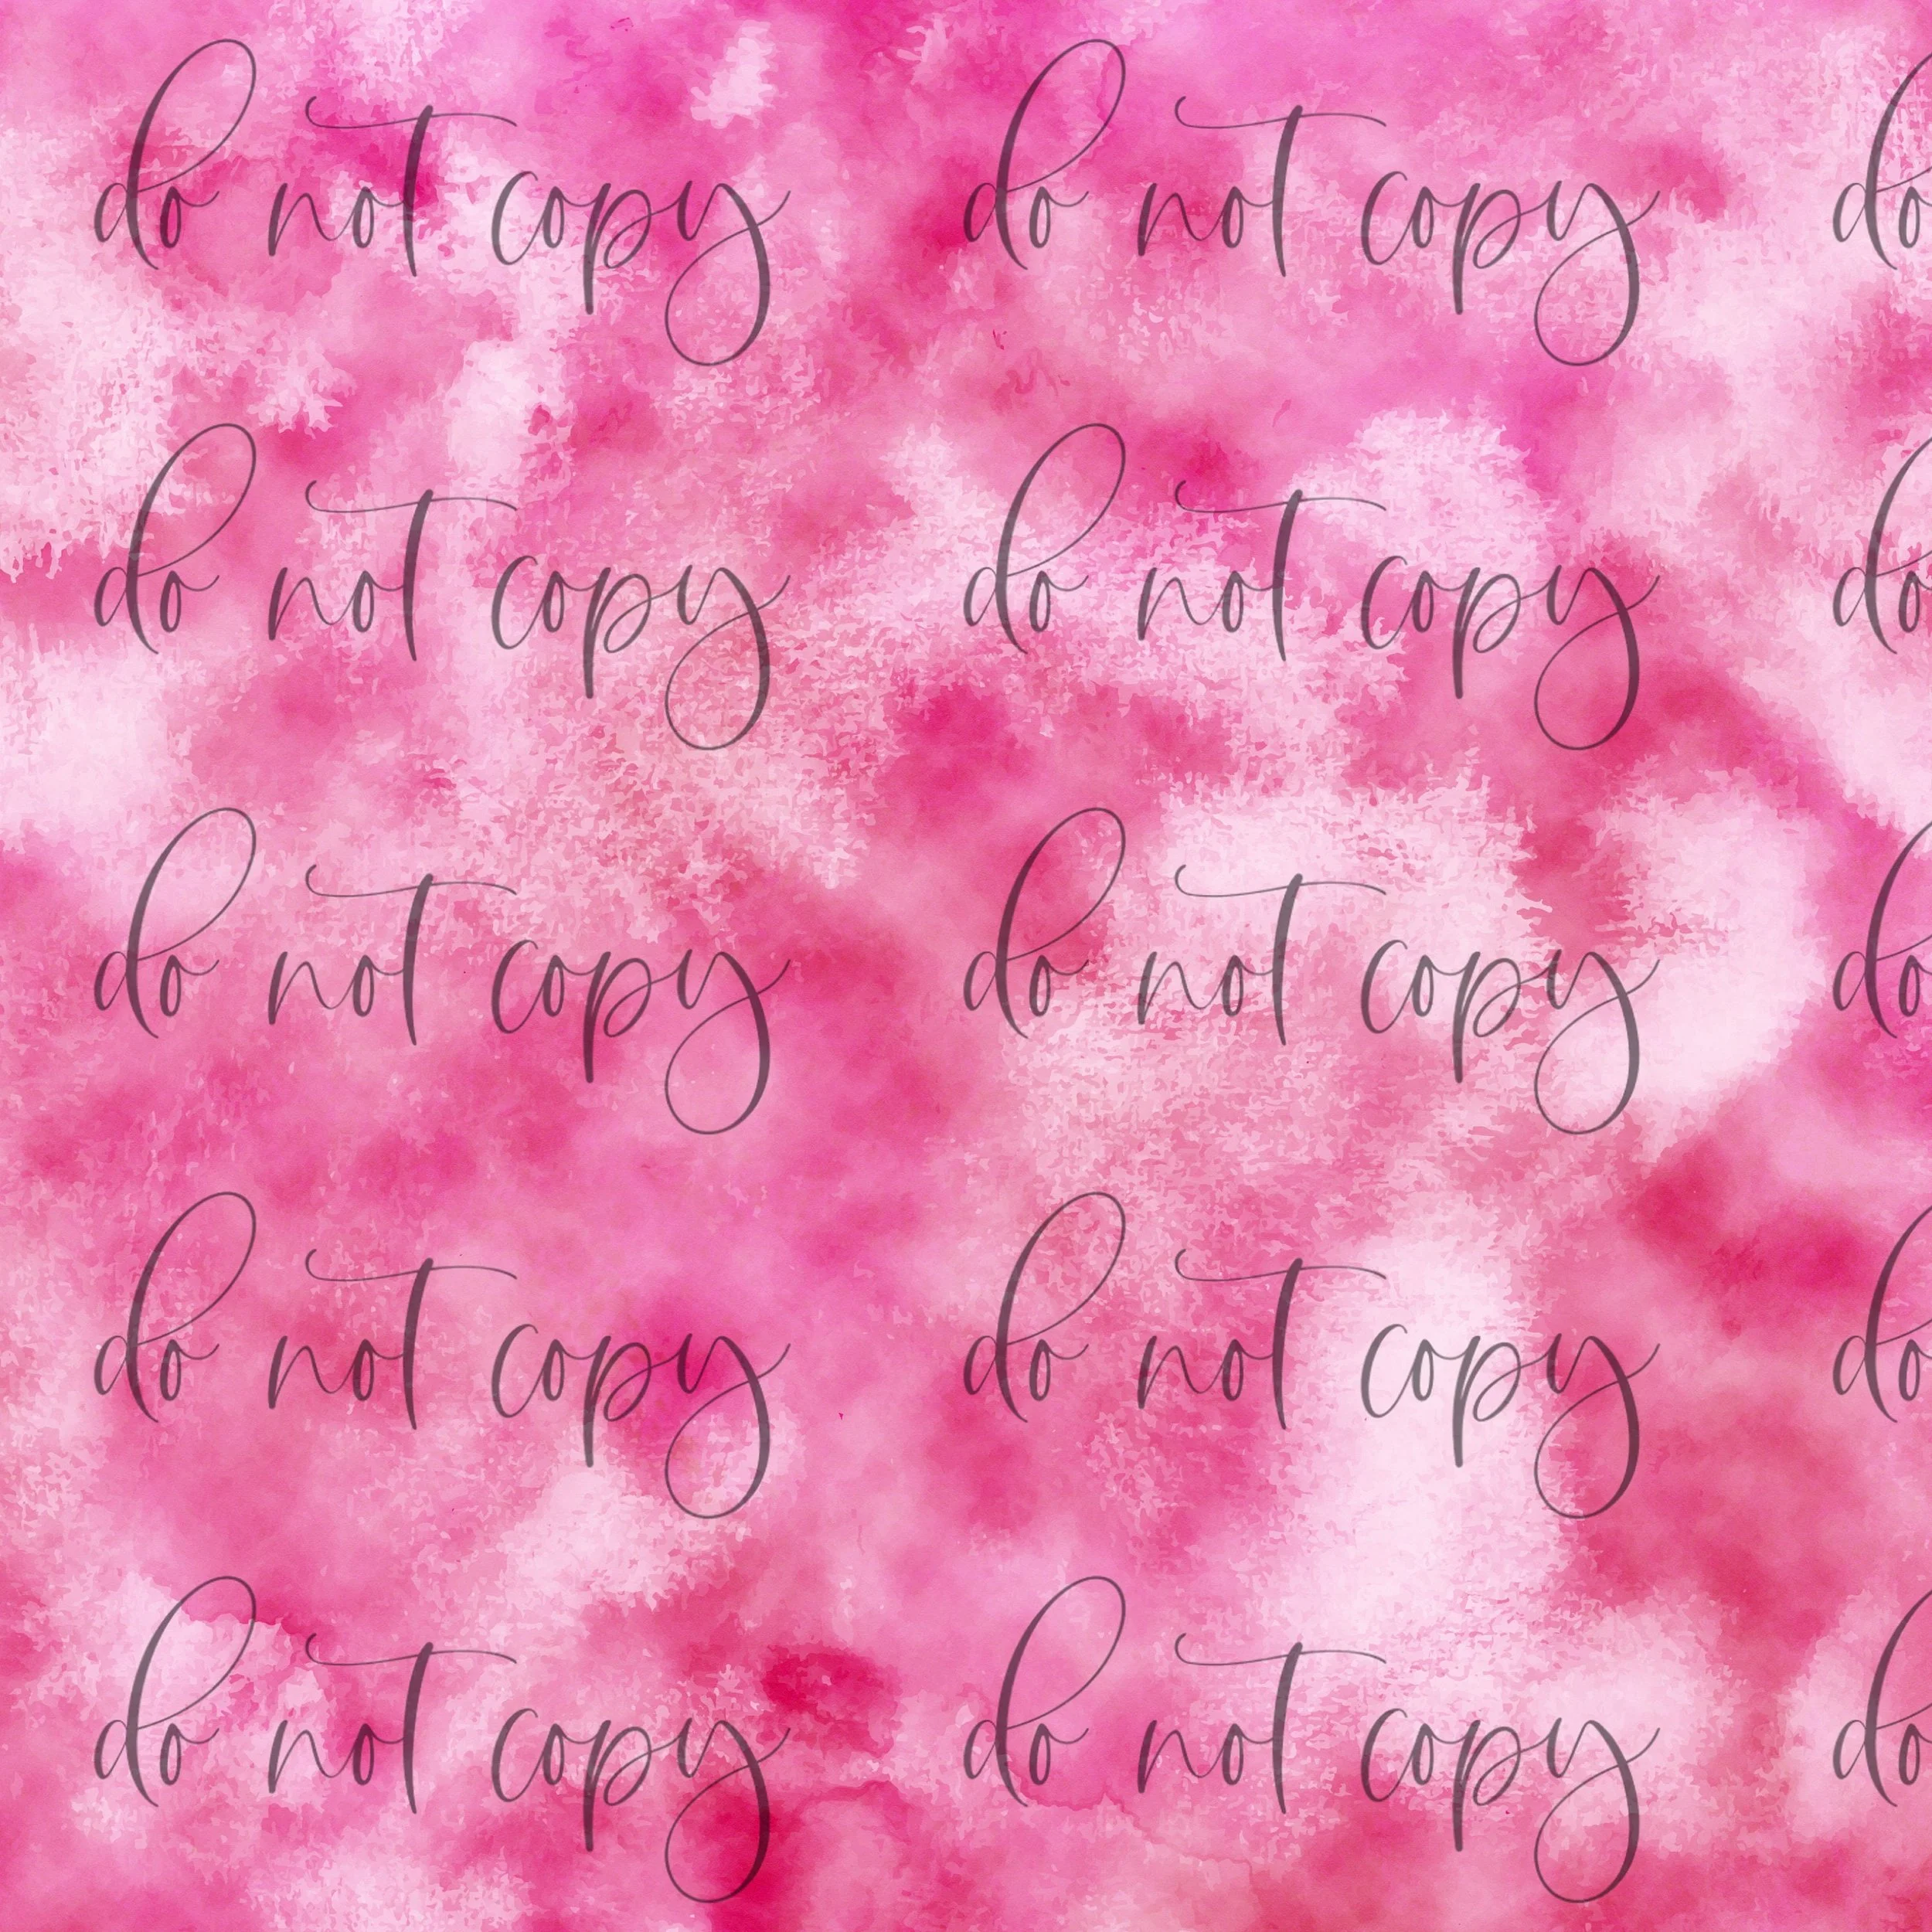 do not copy do not copy do
do not copy do not copy do
do not copy do not copy do
do not copy do not copy do
do not copy do not copy do